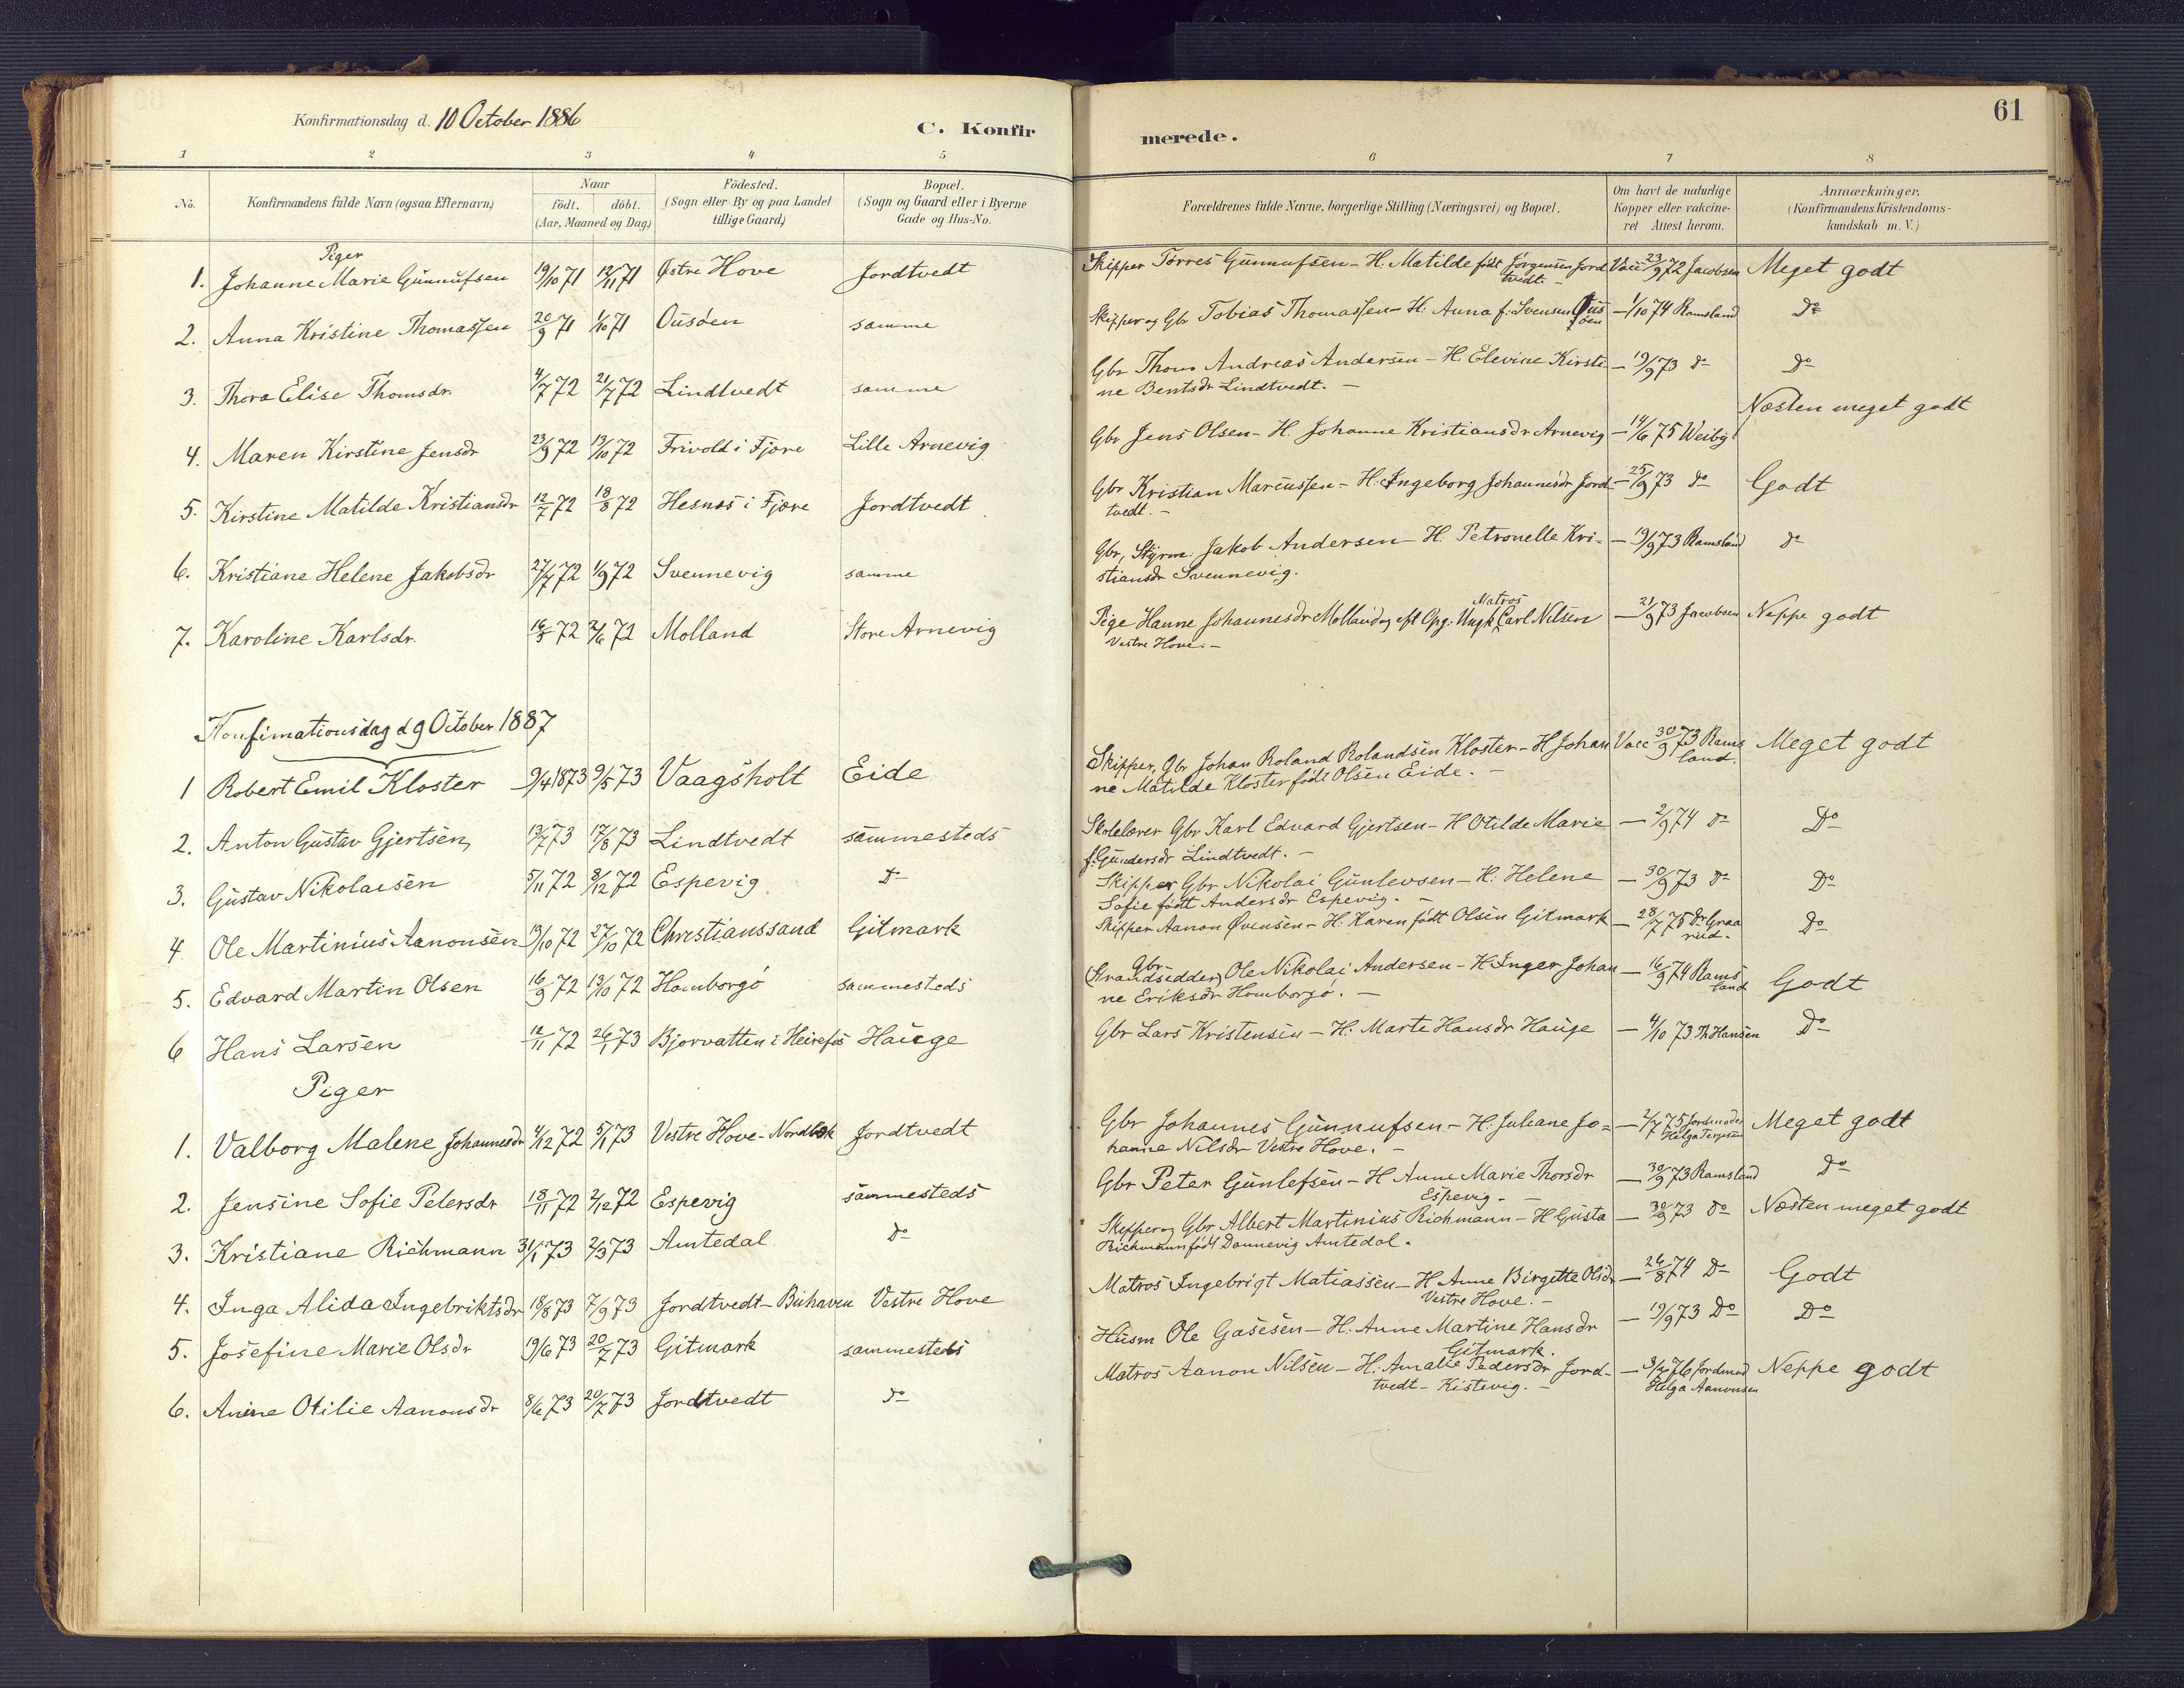 61
Konfirmationsdag d. 10 October 1886
C. Konfirmerede.
1 2 3 4 5 6 7 8
No.
Konfirmandens fulde Navn (ogsaa Efternavn)
Naar
födt. döbt.
(Aar, Maaned og Dag)
Födested.
(Sogn eller By og paa Landet
tillige Gaard)
Bopæl.
(Sogn og Gaard eller i Byerne
Gade og Hus-No.
Forældrenes fulde Navne, borgerlige Stilling (Næringsvei) og Bopæl.
Om havt de naturlige
Kopper eller vakcine-
ret Attest herom.
Anmærkninger.
(Konfirmandens Kristendoms-
kundskab m. V.)
Piger
1. Johanne Marie Gunnufsen 19/10 71 12/11 71 Østre Hove Jordtvedt Skipper Torres Gunnufsen - H. Matilde født Jørgensen Jord Vacc 23/9 72 Jacobsen Meget godt
tvedt. -
2. Anna Kristine Thomassen 20/9 71 1/10 71 Ousöen samme Skipper og Gbr Tobias Thomassen - H. Anna f. Svensen Ous - 1/10 74 Ramsland Do
öen
3. Thora Elise Thomsdr. 4/7 72 21/7 72 Lindtvedt samme Gbr Thom Andreas Andersen - H. Elevine Kirsti- - 19/9 73 do Do
ne Bentsdr Lindtvedt. -
4. Maren Kirstine Jensdr 23/9 72 13/10 72 Frivold i Fjære Lille Arnevig Gbr Jens Olsen - H. Johanne Kristiansdr Arnevig - 14/6 75 Weibÿ Næsten meget godt
5. Kirstine Matilde Kristiansdr 12/7 72 18/8 72 Hesnæs i Fjære Jordtvedt Gbr Kristian Marcussen - H. Ingeborg Johannesdr Jord - 25/9 73 do Godt
tvedt. -
6. Kristiane Helene Jakobsdr 27/7 72 1/9 72 Svennevig samme Gbr, Styrm. Jakob Andersen - H. Petronelle Kri- - 19/9 73 Ramsland do
stiansdr Svennevig.
7. Karoline Karlsdr. 16/3 72 2/6 72 Molland Store Arnevig Pige Hanne Johannesdr Molland og eft Opg. Ungk Matros Carl Nilsen - 21/9 73 Jacobsen Neppe godt
Vestre Hove. -
Konfimationsdag d 9 October 1887
1 Robert Emil Kloster 9/4 1873 9/5 73 Vaagsholt Eide Skipper, Gbr Johan Roland Rolandsen Kloster - H Johan Vacc 30/9 73 Rams Meget godt
ne Matilde Kloster født Olsen Eide. - land.
2. Anton Gustav Gjertsen 13/7 73 17/8 73 Lindtvedt sammesteds Skolelærer Gbr Karl Edvard Gjertsen - H Otilde Marie - 2/9 74 do Do
f. Gundersdr Lindtvedt. -
3. Gustav Nikolaisen 5/11 72 8/12 72 Espevig Do Skipper Gbr Nikolai Gunlevsen - H. Helene - 30/9 73 do Do
Sofie født Andersdr Espevig. -
4. Ole Martinius Aanonsen 13/10 72 27/10 72 Christianssand Gitmark Skipper Aanon Øvensen - H. Karen født Olsen Gitmark - 28/7 75 Dr Graa Do
rud.
5. Edvard Martin Olsen 16/9 72 13/10 72 Homborgö sammesteds Gbr (Strandsidder) Ole Nikolai Andersen - H. Inger Johan - 16/9 74 Rams Godt
ne Eriksdr Homborgö. - land
6 Hans Larsen 12/11 72 26/1 73 Bjorvatten i Heirefos Hauge Gbr Lars Kristensen - H. Marte Hansdr Hauge - 4/10 73 Th Hansen Do
Piger
1. Valborg Malene Johannesdr 4/12 72 5/1 73 Vestre Hove - Nordbak Jordtvedt Gbr Johannes Gunnufsen - H. Juliane Jo= - 2/7 75 Jordmoder Meget godt
hanne Nilsdr Vestre Hove. - Helga Terjesen
2. Jensine Sofie Petersdr 18/11 72 2/12 72 Espevig sammesteds Gbr Peter Gunlefsen - H Anne Marie Thorsdr - 30/9 73 Ramsland Do
Espevig. -
3. Kristiane Richmann 31/1 73 2/3 73 Amtedal Do Skipper og Gbr Albert Martinius Richmann - H Gusta - 30/9 73 Do Næsten meget godt
Richmann født Dannevig Amtedal.
4. Inga Alida Ingebriktsdr 18/8 73 7/9 73 Jordtvedt - Buhaven Vestre Hove Matros Ingebrigt Matiassen - H Anne Birgitte Olsdr - 26/8 74 Do Godt
Vestre Hove. -
5. Josefine Marie Olsdr 19/6 73 20/7 73 Gitmark sammesteds Husm Ole Gasesen - H. Anne Martine Hansdr - 19/9 73 Do Do
Gitmark.
6. Anine Otilie Aanonsdr 8/6 73 20/7 73 Jordtvedt do Matros Aanon Nilsen - H. Amalie Pedersdr Jord- - 3/2 76 Jordmod Neppe godt
tvedt - Kistevig. - Helga Aanonsen